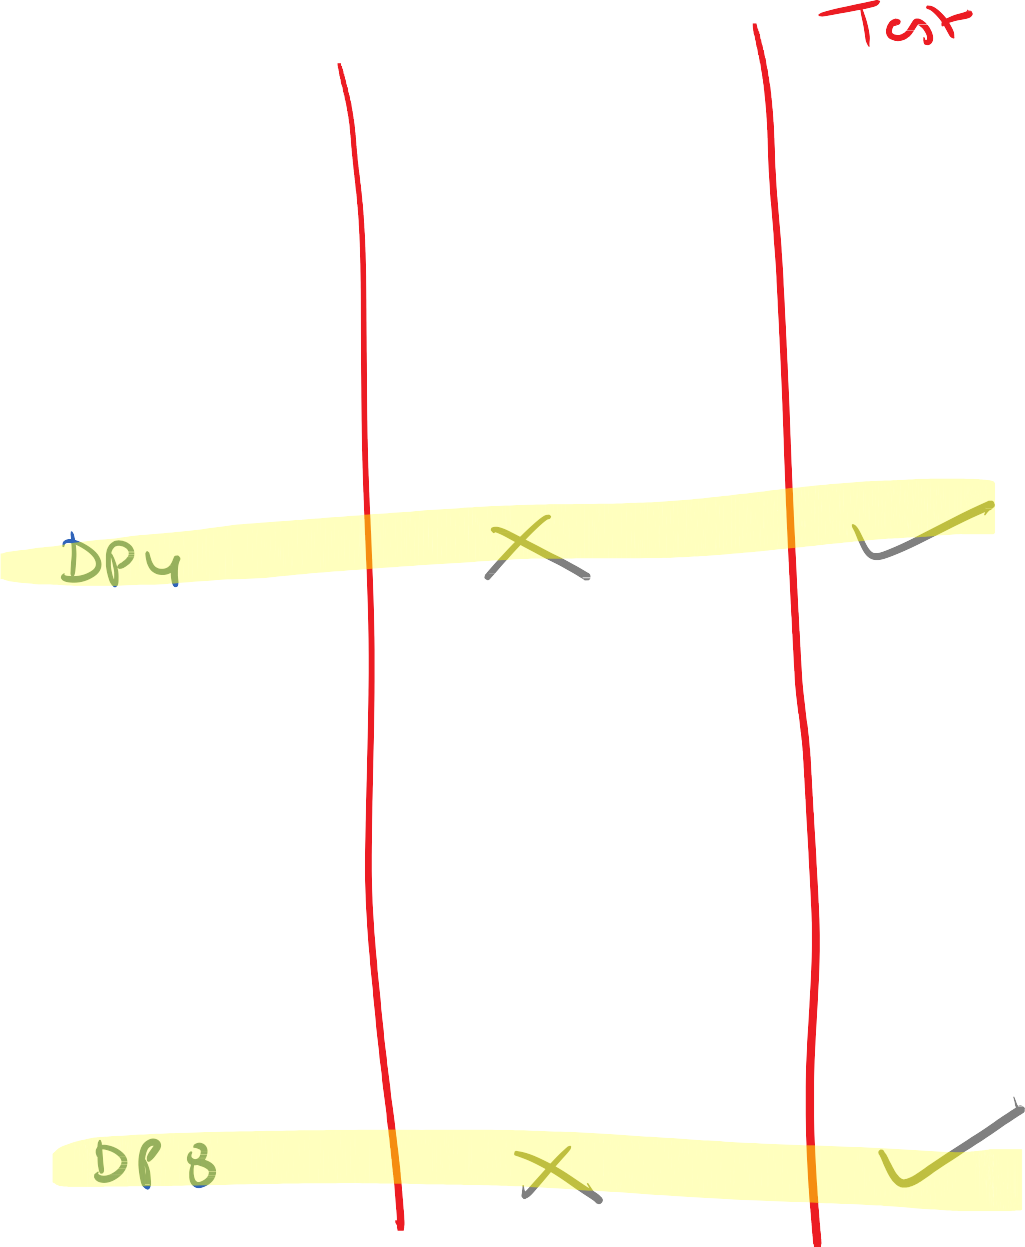 Test
DP4 × ✓
DP 8 × ✓